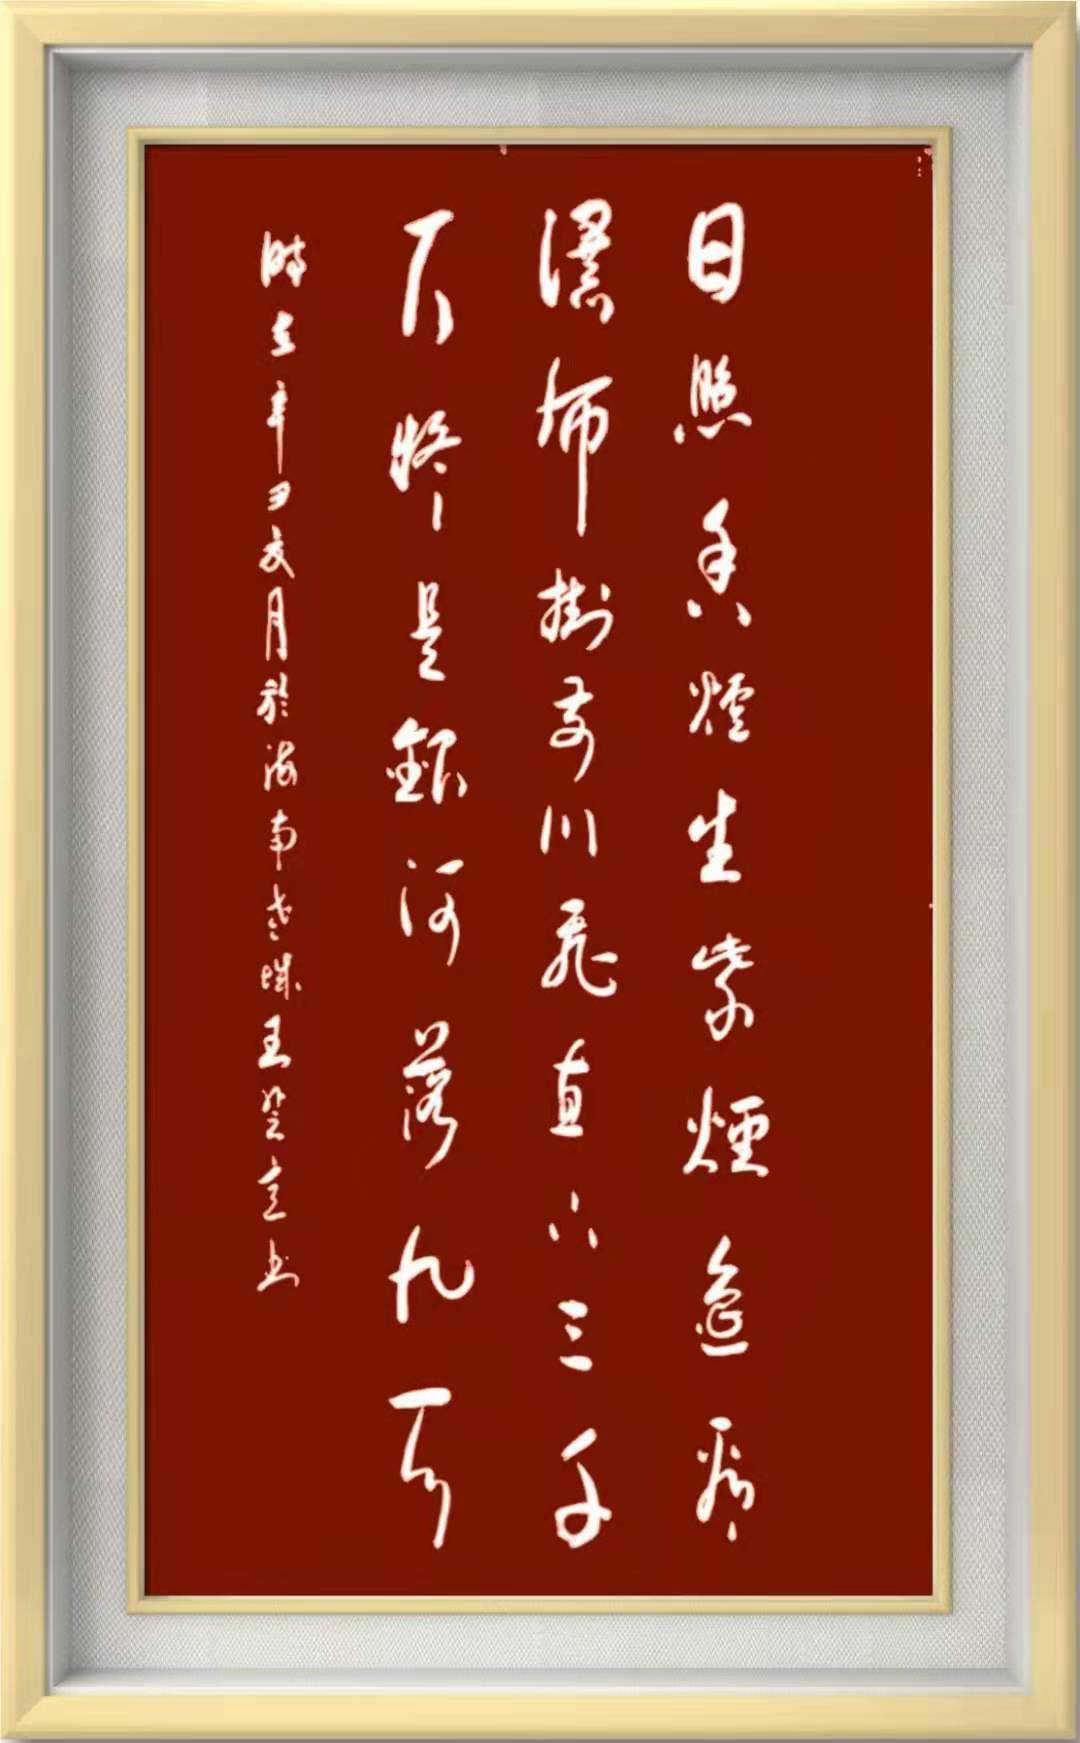 日照香爐生紫煙遙看
瀑布掛前川飛直下三千
尺疑是銀河落九天
時在辛丑夏月於海南老城王立书